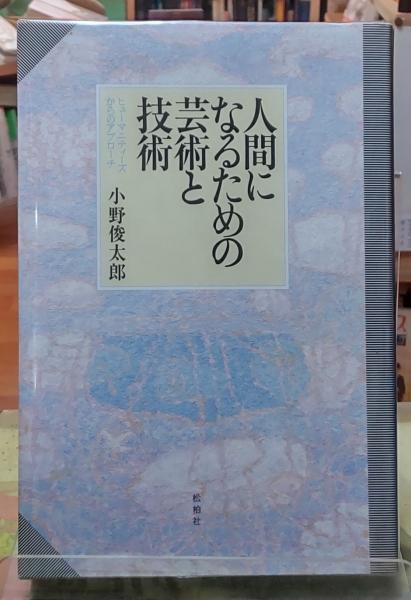 人間に
なるための
芸術と
技術
ヒューマニティーズ
からのアプローチ
小野俊太郎
松柏社